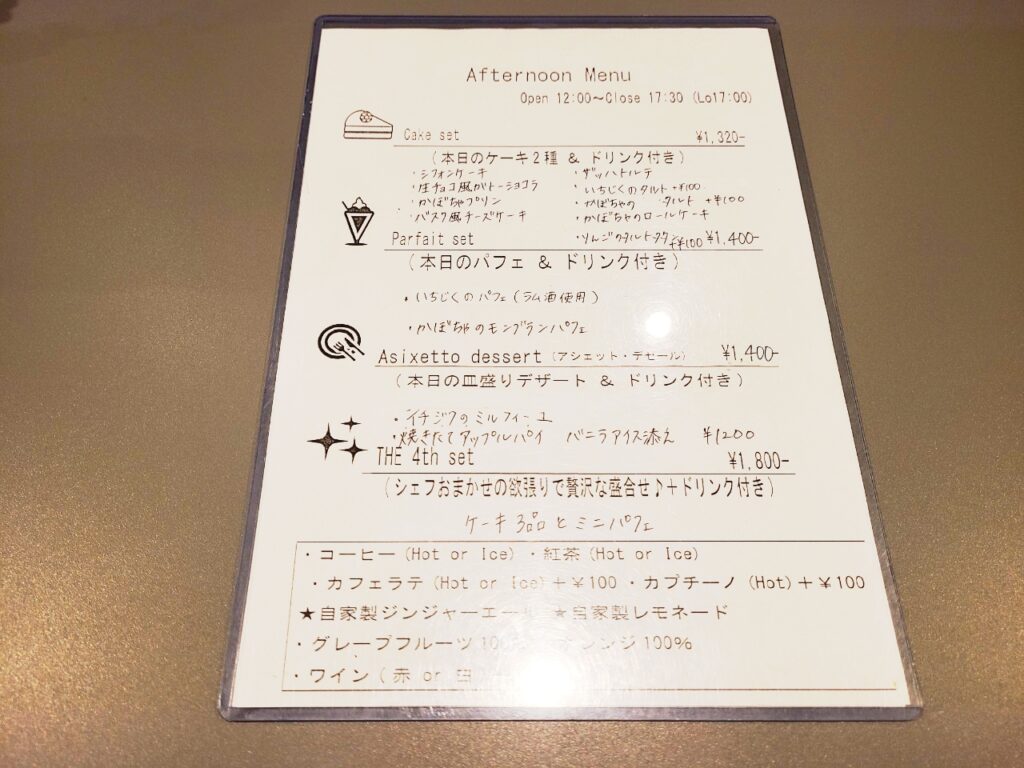 Afternoon Menu
Open 12:00～Close 17:30 (Lo17:00)
Cake set ¥1,320-
(本日のケーキ2種 & ドリンク付き)
・シフォンケーキ ・ザッハトルテ
・生チョコ風ガトーショコラ ・いちじくのタルト +¥100
・かぼちゃプリン ・かぼちゃの タルト +¥100
・バスク風チーズケーキ ・かぼちゃのロールケーキ
・りんごのタルトタタン +¥100
Parfait set ¥1,400-
(本日のパフェ & ドリンク付き)
・いちじくのパフェ(ラム酒使用)
・かぼちゃのモンブランパフェ
Asixetto dessert (アシェット・デセール) ¥1,400-
(本日の皿盛りデザート & ドリンク付き)
・イチジクのミルフィーユ
・焼きたてアップルパイ バニラアイス添え ¥1200
THE 4th set ¥1,800-
(シェフおまかせの欲張りで贅沢な盛合せ♪+ドリンク付き)
ケーキ3品とミニパフェ
・コーヒー(Hot or Ice) ・紅茶(Hot or Ice)
・カフェラテ(Hot or Ice)+¥100 ・カプチーノ(Hot)+¥100
★自家製ジンジャーエール ★自家製レモネード
・グレープフルーツ 100% オレンジ100%
・ワイン(赤 or 白